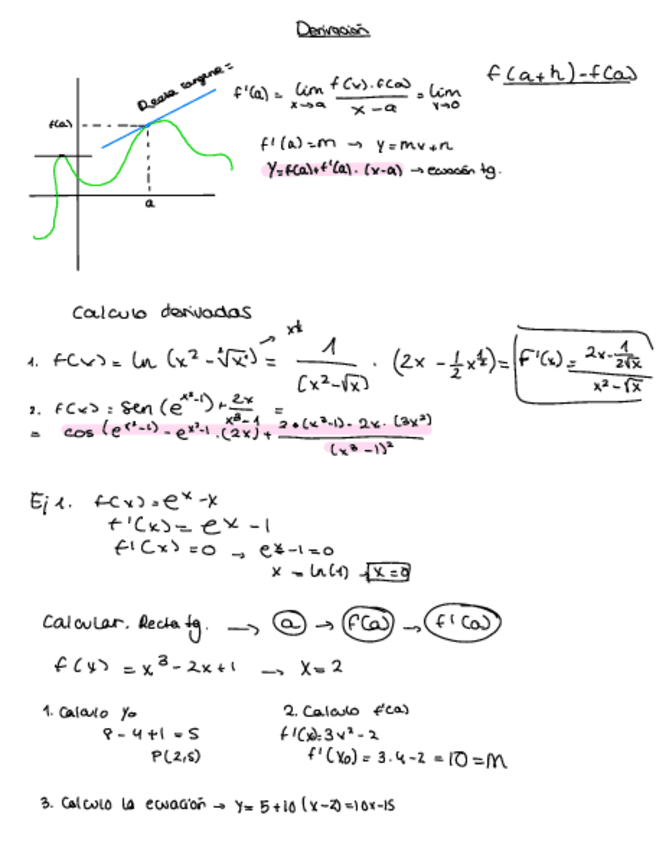 Derivación
Recta tangente =
f'(a) = lim x→a f(x)-f(a) / x-a = lim x→0
f(a+h)-f(a)
f(a)
a
f'(a)=m → y=mx+n
y=f(a)+f'(a)·(x-a) → ecuación tg.
Calculo derivadas
→ x^½
1. f(x) = ln (x² - ²√x¹) = 1 / (x²-√x) · (2x - 1/2 x^½) = f'(x) = 2x - 1/2√x / x²-√x
2. f(x) = sen (e^x²-1) + 2x / x³-1 =
= cos (e^x²-1) - e^x²-1 · (2x) + 2·(x³-1) - 2x·(3x²) / (x³-1)²
Ej 1. f(x) = e^x -x
f'(x) = e^x - 1
f'(x) = 0 → e^x-1=0
x = ln(1) x=0
Calcular. Recta tg. → a → f(a) → f'(a)
f(x) = x³-2x+1 → x=2
1. Calculo y₀
8-4+1=5
P(2,5)
2. Calculo f'(a)
f'(x)=3x²-2
f'(x₀) = 3·4-2=10=m
3. Calculo la ecuación → y= 5+10(x-2)=10x-15